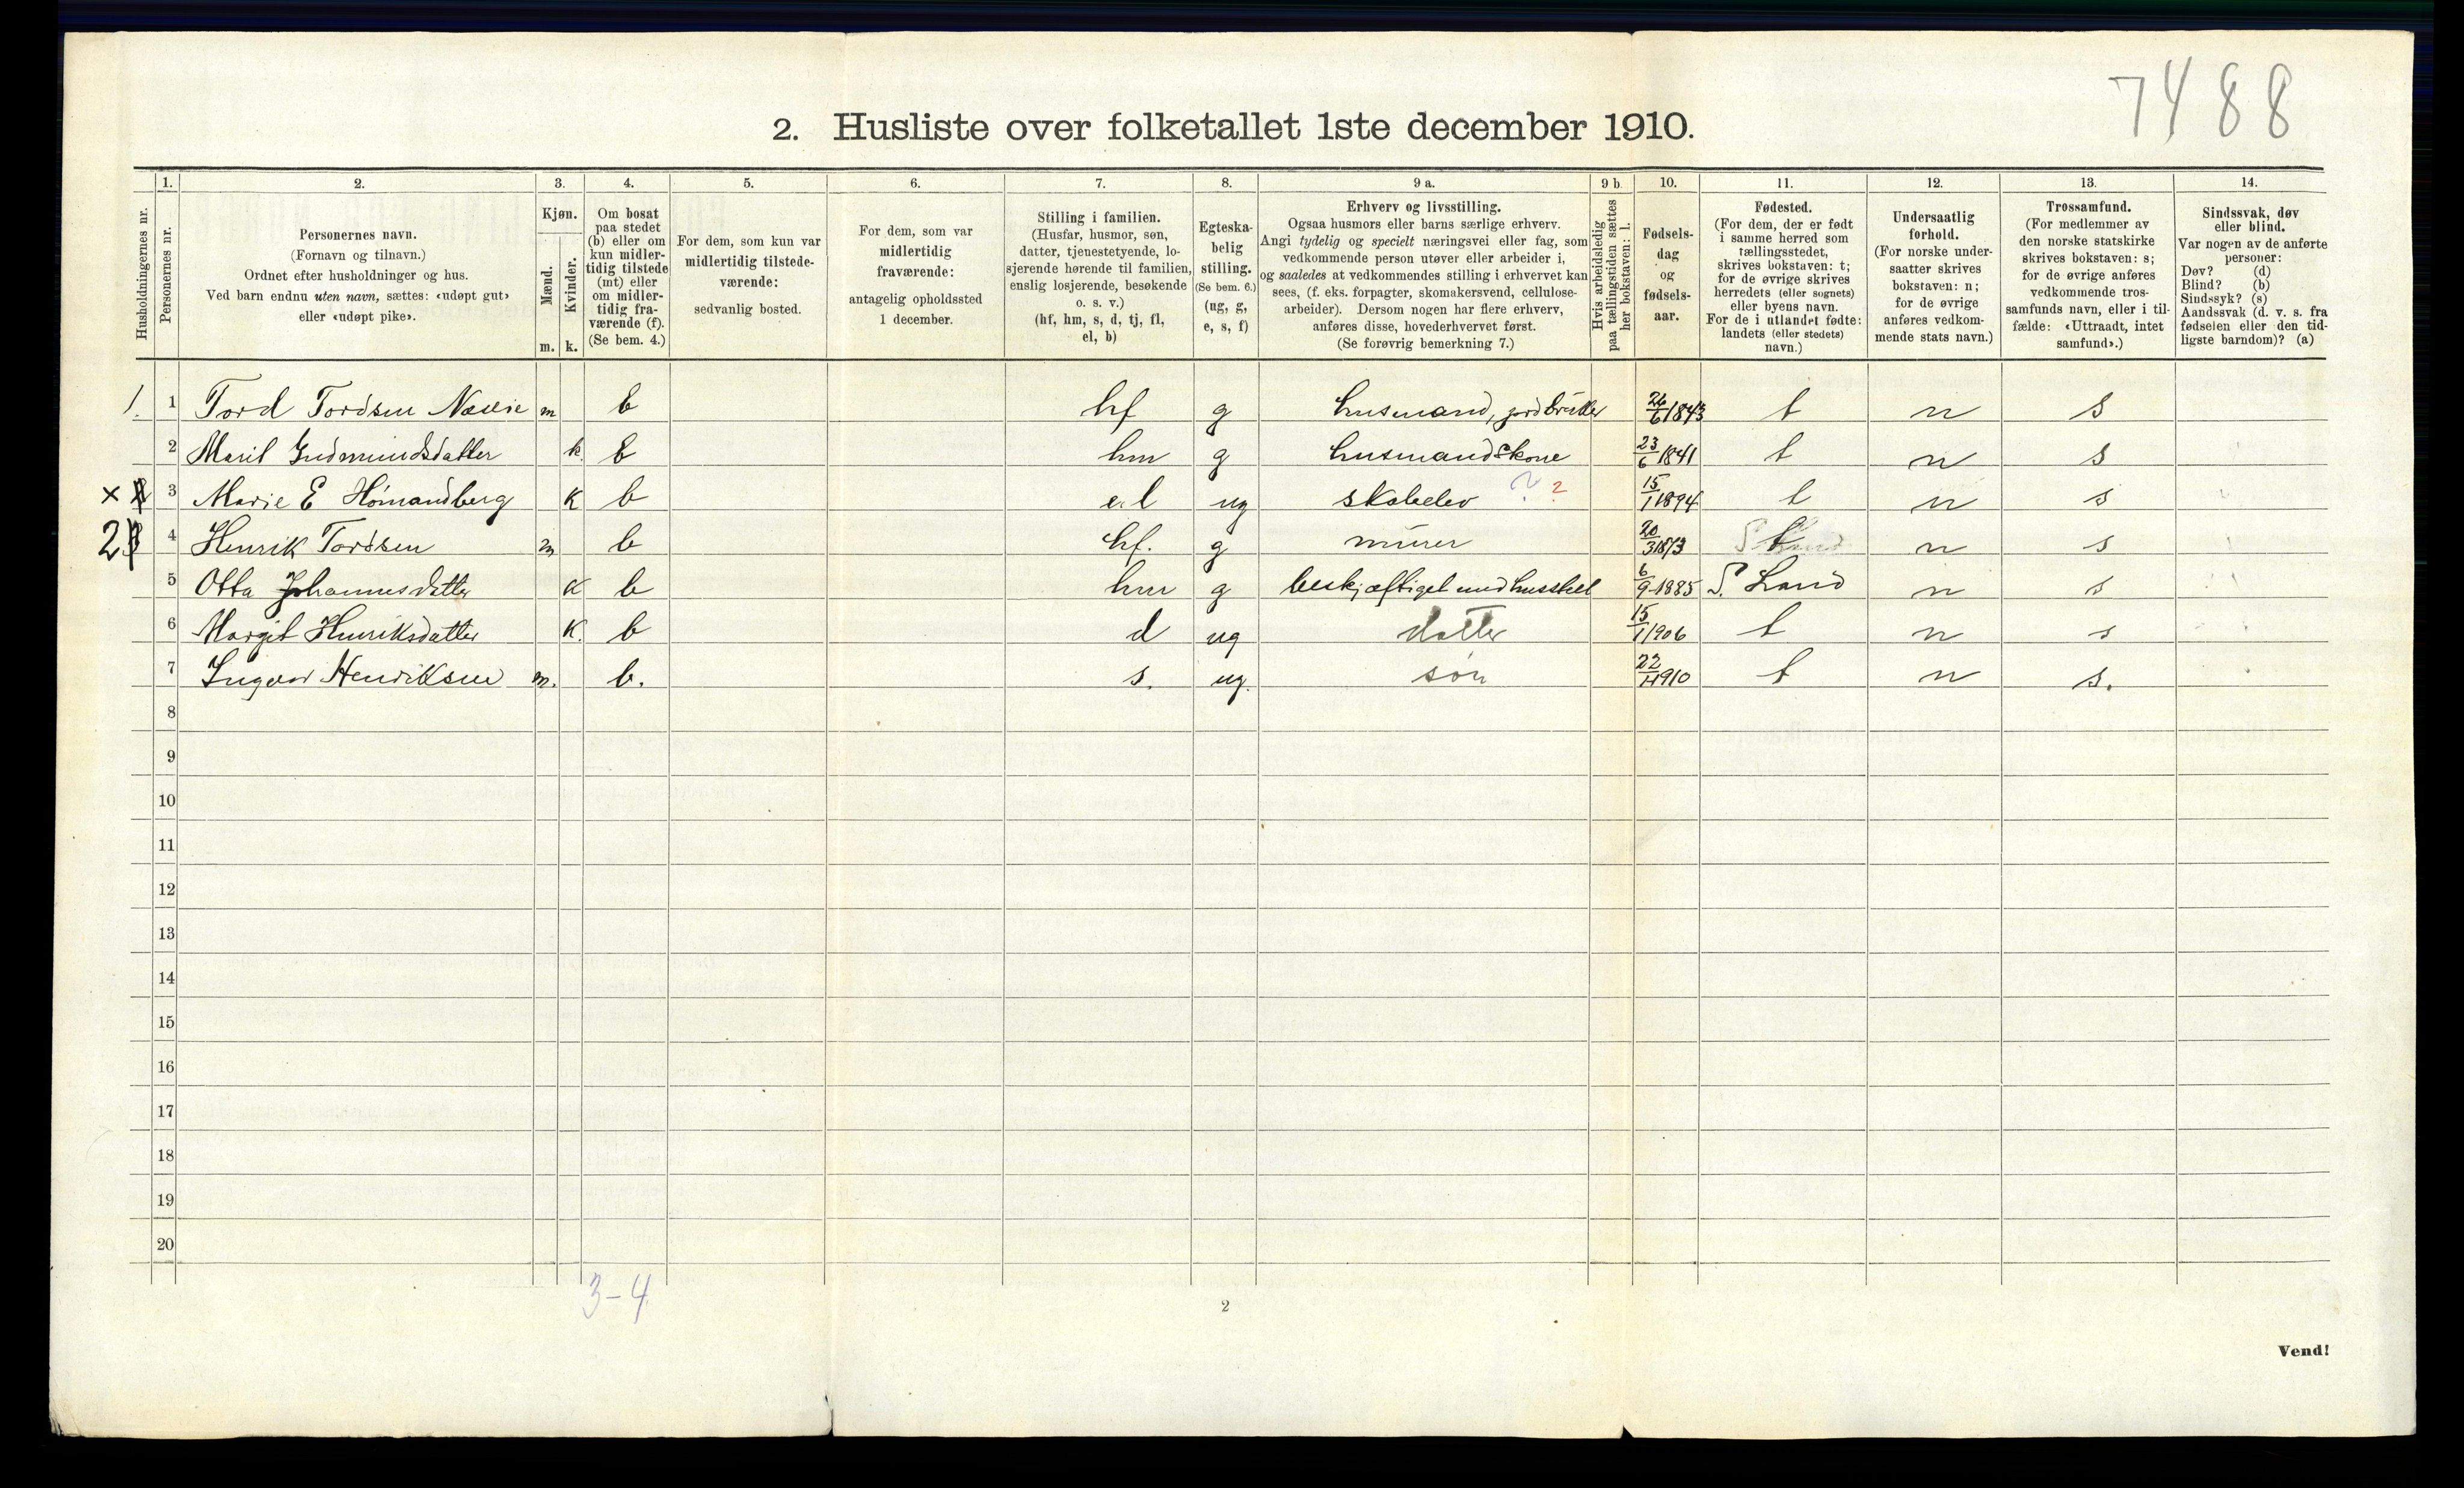 7488
2. Husliste over folketallet 1ste december 1910.
Husholdningernes nr.
1.
Personernes nr.
2.
Personernes navn.
(Fornavn og tilnavn.)
Ordnet efter husholdninger og hus.
Ved barn endnu uten navn, sættes: «udøpt gut»
eller «udøpt pike».
3.
Kjøn.
Mænd.
Kvinder.
m. k.
4.
Om bosat
paa stedet
(b) eller om
kun midler-
tidig tilstede
(mt) eller
om midler-
tidig fra-
værende (f).
(Se bem. 4.)
5.
For dem, som kun var
midlertidig tilstede-
værende:
sedvanlig bosted.
6.
For dem, som var
midlertidig
fraværende:
antagelig opholdssted
1 december.
7.
Stilling i familien.
(Husfar, husmor, søn,
datter, tjenestetyende, lo-
sjerende hørende til familien,
enslig losjerende, besøkende
o. s. v.)
(hf, hm, s, d, tj, fl,
el, b)
8.
Egteska-
belig
stilling.
(Se bem. 6.)
(ug, g,
e, s, f)
9 a.
Erhverv og livsstilling.
Ogsaa husmors eller barns særlige erhverv.
Angi tydelig og specielt næringsvei eller fag, som
vedkommende person utøver eller arbeider i,
og saaledes at vedkommendes stilling i erhvervet kan
sees, (f. eks. forpagter, skomakersvend, cellulose-
arbeider). Dersom nogen har flere erhverv,
anføres disse, hovederhvervet først.
(Se forøvrig bemerkning 7.)
9 b.
Hvis arbeidsledig
paa tællingstiden sættes
her bokstaven: l.
10.
Fødsels-
dag
og
fødsels-
aar.
11.
Fødested.
(For dem, der er født
i samme herred som
tællingsstedet,
skrives bokstaven: t;
for de øvrige skrives
herredets (eller sognets)
eller byens navn.
For de i utlandet fødte:
landets (eller stedets)
navn.)
12.
Undersaatlig
forhold.
(For norske under-
saatter skrives
bokstaven: n;
for de øvrige
anføres vedkom-
mende stats navn.)
13.
Trossamfund.
(For medlemmer av
den norske statskirke
skrives bokstaven: s;
for de øvrige anføres
vedkommende tros-
samfunds navn, eller i til-
fælde: «Uttraadt, intet
samfund».)
14.
Sindssvak, døv
eller blind.
Var nogen av de anførte
personer:
Døv? (d)
Blind? (b)
Sindssyk? (s)
Aandssvak (d. v. s. fra
fødselen eller den tid-
ligste barndom)? (a)
1. 1 Tord Tordsen m b hf g husmand, jordbruker 26/6 1843 t n s
2 Marit Gudmundsdatter k. b hm g husmandskone 23/6 1841 t n s
× 3 Marie E Hømandberg k b el ug ? ? 15/1 1894 t n s
2 4 Henrik Tordsen m b hf. g murer 20/3 1873 t n s
5 Otta Johannesdatter k b hm g beskjæftiget med husstel 6/9 1885 S. Land n s
6 Margit Henriksdatter k. b d ug datter 15/1 1906 t n s
7 Ingvar Henriksen m. b. s. ug. søn 22/11 1910 t n s.
8
9
10
11
12
13
14
15
16
17
18
19
20
3-4
2
Vend!